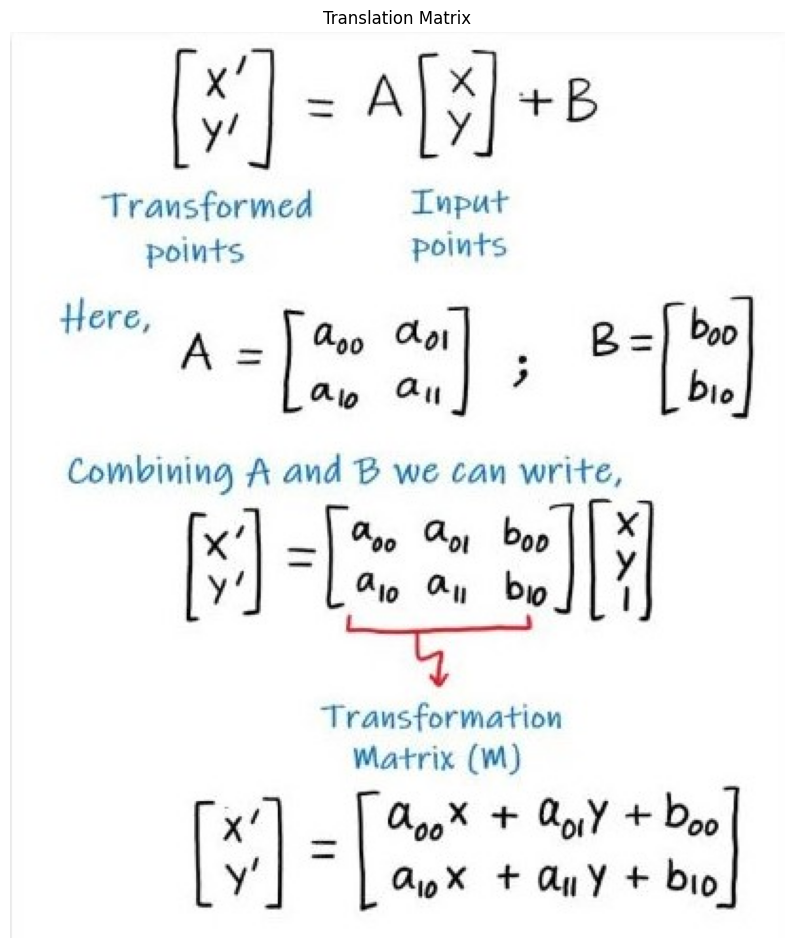 Translation Matrix
[x' y'] = A [x y] + B
Transformed points
Input points
Here,
A = [a₀₀ a₀₁; a₁₀ a₁₁] ; B = [b₀₀ b₁₀]
Combining A and B we can write,
[x' y'] = [a₀₀ a₀₁ b₀₀; a₁₀ a₁₁ b₁₀] [x y 1]
Transformation
Matrix (M)
[x' y'] = [a₀₀x + a₀₁y + b₀₀; a₁₀x + a₁₁y + b₁₀]